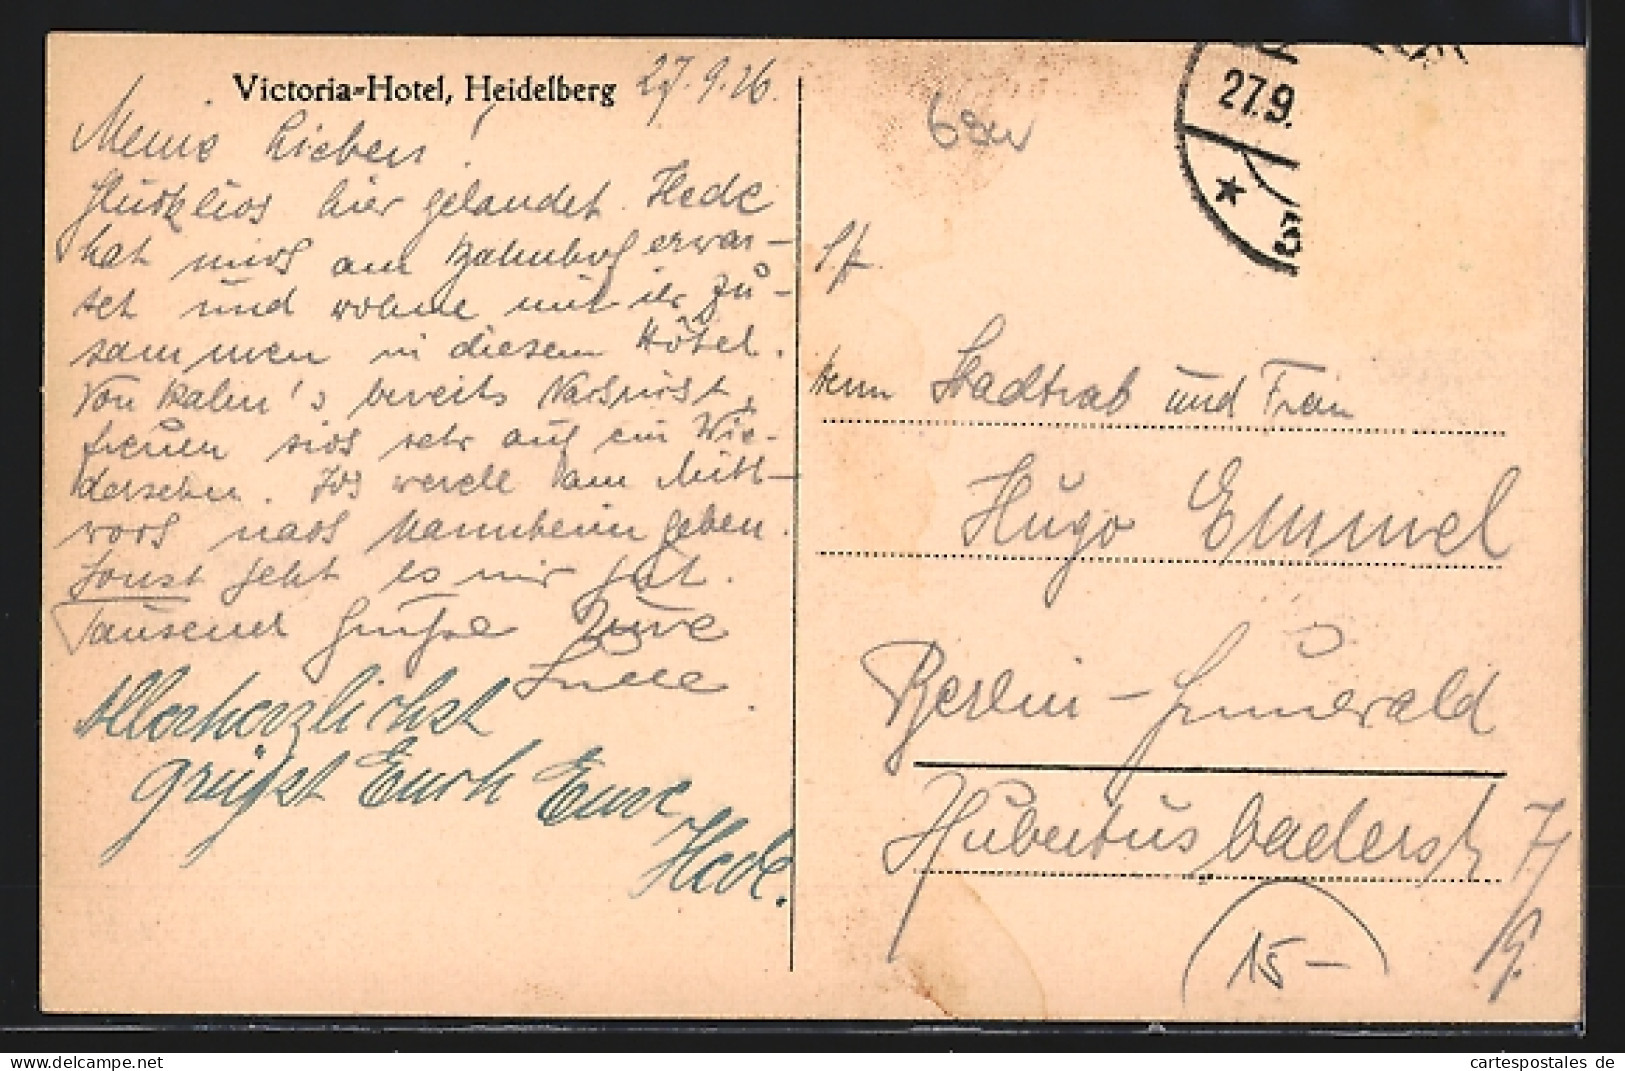 Victoria-Hotel, Heidelberg 27.9.26.
Meine Lieben!
Glücklich hier gelandet. Hede
hat mich am Bahnhof erwar-
tet und wohne mit ihr zu-
sammen in diesem Hôtel.
Von Kahn's bereits Nachricht,
freuen sich sehr auf ein Wie-
dersehen. Ich werde am Mitt-
woch nach Mannheim gehen.
Sonst geht es mir gut.
Tausend Grüße Eure
Allerherzlichst
grüßt Euch Eure
Hede.
27.9.
* 3
Herrn Stadtrat und Frau
Hugo Emmel
Berlin-Grunewald
Hubertusbaderst
15-
cartespostales de